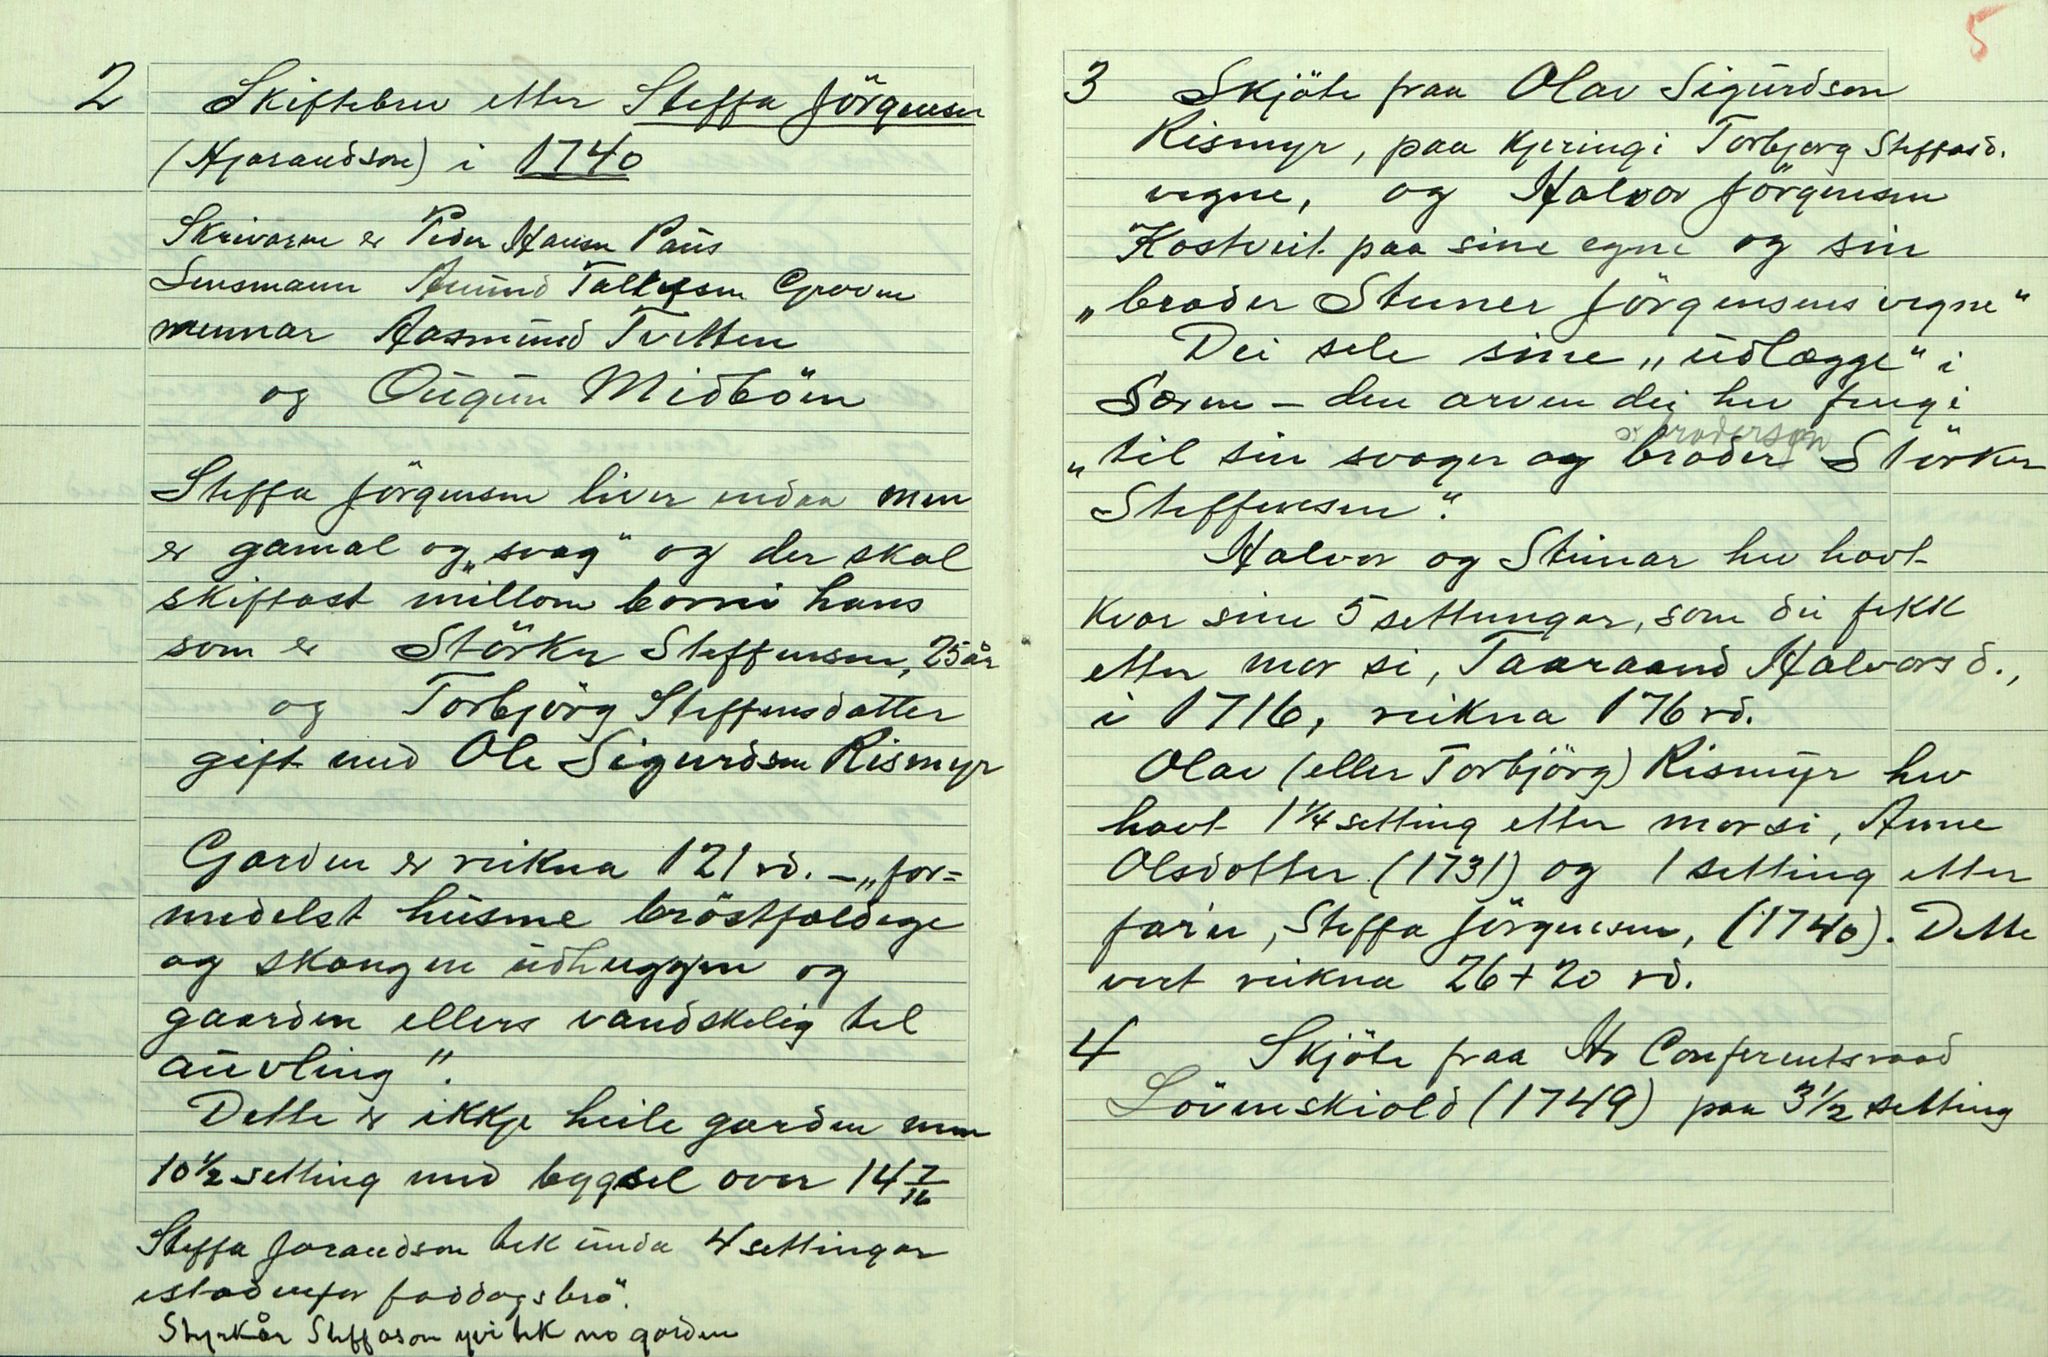 2 Skiftebrev etter Steffa Jörgensen
(Hjarandson) i 1740
Skrivaren er Peder Hansen Paus
Lensmann Amund Tallefsen Groven
mennar Aasmund Tveitten
og Ougun Midböen
Steffa Jörgensen liver endaa men
er gamal og „svag“ og der skal
skiftast millom borni hans
som er Störker Steffensen, 25 år
og Torbjörg Steffensdatter
gift med Ole Sigurdsen Rismyr
Garden er reikna 121 rd. – „for=
medelst husene bröstfældige
og skougen udhuggen og
gaarden ellers vandskelig til
auvling“.
Dette er ikkje heile garden men
10 1/2 setting med bygsel over 14 7/16
Steffa Jorandson tek unda 4 settingar
istadenfor foddogsbrö.
Styrkår Steffason yvi tek no garden
5
3 Skjöte fraa Olav Sigurdson
Rismyr, paa kjeringi Torbjorg Steffasd.
vegne, og Halvor Jörgensen
Kostveit paa sine egne og sin
„broder Stener Jörgensens vegne“
Dei sele sine „udlægge“ i
– den arven dei hev fengi
er brodersön
„til sin svoger og broder Störker
Steffensen“.
Halvor og Steinar hev havt
kvar sine 5 settungar, som dei fekk
etter mor si, Taaraand Halvorsd.,
i 1716, reikna 176 rd.
Olav (eller Torbjörg) Rismyr hev
havt 1 1/4 setting etter mor si, Anne
Olsdotter (1731) og 1 setting etter
far'n, Steffa Jörgensen, (1740). Dette
vert reikna 26 + 20 rd.
4 Skjöte fraa Hr Conferentsraad
Lövenskiold (1749) paa 3 1/2 setting